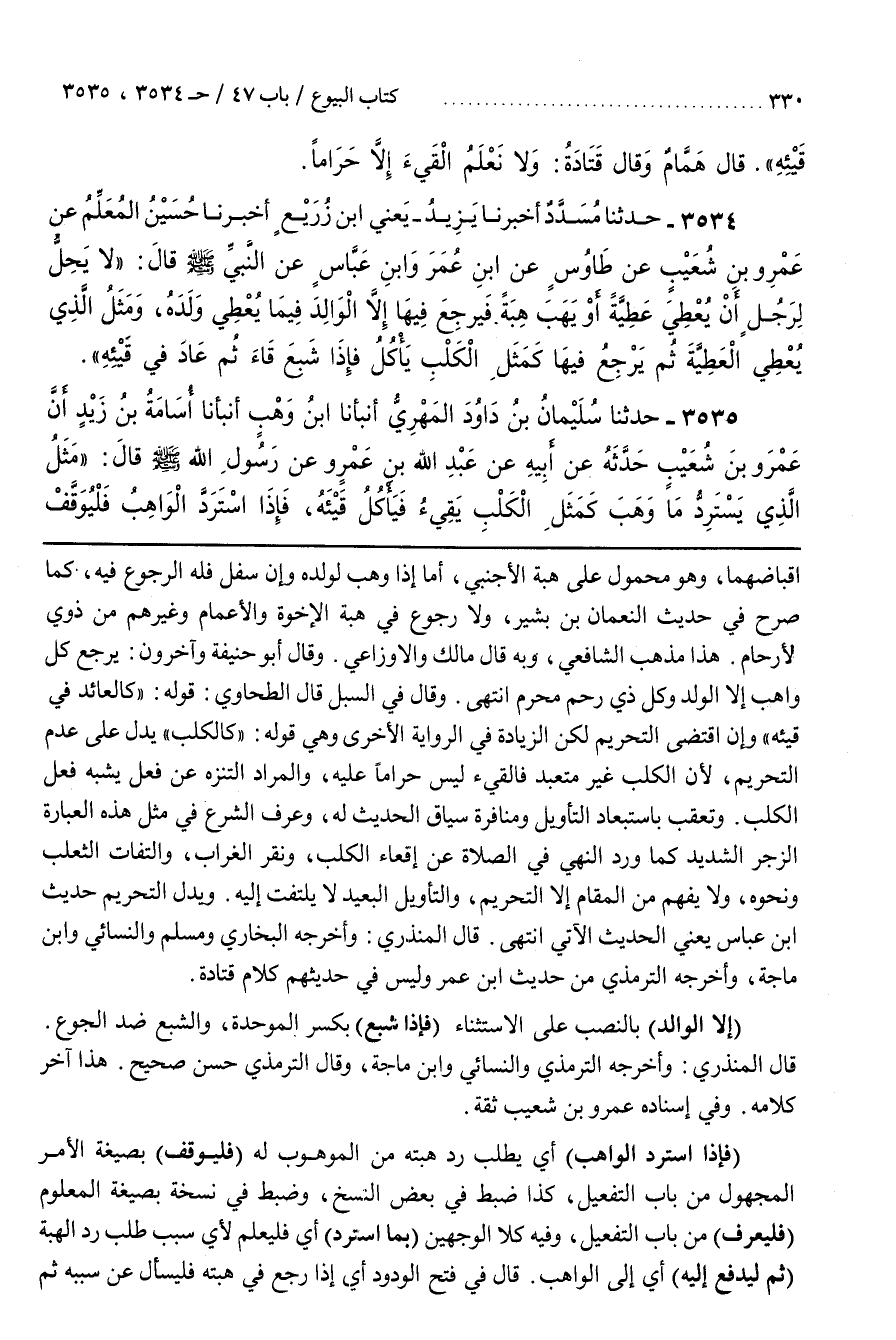 ٣٣٠ ..................................... كتاب البيوع / باب ٤٧ / حـ ٣٥٣٤ ، ٣٥٣٥
قَيْئِهِ». قال هَمَّامٌ وَقال قَتَادَةُ: وَلا نَعْلَمُ الْقَيءَ إِلَّا حَرَاماً.
٣٥٣٤ ـ حـدثنا مُسَـدَّدٌ أخبرنـا يَـزِيـدُ ـ يَعني ابن زُرَيْـع ٍ أخبـرنـا حُسَيْنُ المُعَلِّمُ عن
عَمْرِو بنِ شُعَيْبٍ عن طَاوُس ٍ عن ابنِ عُمَرَ وَابنِ عَبَّاس ٍ عن النَّبيِّ ﷺ قالَ: «لا يَحِلُّ
لِرَجُـل ٍ أَنْ يُعْطِيَ عَطِيَّةً أَوْ يَهَبَ هِبَةً فَيرجِعَ فِيهَا إِلَّا الْوَالِدَ فِيمَا يُعْطِي وَلَدَهُ، وَمَثَلُ الَّذِي
يُعْطِي الْعَطِيَّةَ ثُم يَرْجِعُ فيهَا كَمَثَل ِ الْكَلْبِ يَأْكُلُ فإِذَا شَبِعَ قَاءَ ثُم عَادَ في قَيْئِهِ».
٣٥٣٥ ـ حدثنا سُلَيْمانُ بنُ دَاوُدَ المَهْرِيُّ أنبأنا ابنُ وَهْبٍ أنبأنا أُسَامَةُ بنُ زَيْدٍ أَنَّ
عَمْرَو بنَ شُعَيْبٍ حَدَّثَهُ عن أَبِيهِ عن عَبْدِ الله بنِ عَمْرٍو عن رَسُول ِ الله ﷺ قالَ: «مَثَلُ
الَّذِي يَسْتَرِدُّ مَا وَهَبَ كَمَثَل ِ الْكَلْبِ يَقِيءُ فَيَأْكُلُ قَيْئَهُ، فَإِذَا اسْتَرَدَّ الْوَاهِبُ فَلْيُوَقَّفْ
اقباضهما، وهو محمول على هبة الأجنبي، أما إذا وهب لولده وإن سفل فله الرجوع فيه، كما
صرح في حديث النعمان بن بشير، ولا رجوع في هبة الإخوة والأعمام وغيرهم من ذوي
لأرحام. هذا مذهب الشافعي، وبه قال مالك والاوزاعي. وقال أبو حنيفة وآخرون: يرجع كل
واهب إلا الولد وكل ذي رحم محرم انتهى. وقال في السبل قال الطحاوي: قوله: «كالعائد في
قيئه» وإن اقتضى التحريم لكن الزيادة في الرواية الأخرى وهي قوله: «كالكلب» يدل على عدم
التحريم، لأن الكلب غير متعبد فالقيء ليس حراماً عليه، والمراد التنزه عن فعل يشبه فعل
الكلب. وتعقب باستبعاد التأويل ومنافرة سياق الحديث له، وعرف الشرع في مثل هذه العبارة
الزجر الشديد كما ورد النهي في الصلاة عن إقعاء الكلب، ونقر الغراب، والتفات الثعلب
ونحوه، ولا يفهم من المقام إلا التحريم، والتأويل البعيد لا يلتفت إليه. ويدل التحريم حديث
ابن عباس يعني الحديث الآتي انتهى. قال المنذري: وأخرجه البخاري ومسلم والنسائي وابن
ماجة، وأخرجه الترمذي من حديث ابن عمر وليس في حديثهم كلام قتادة.
(إلا الوالد) بالنصب على الاستثناء (فإذا شبع) بكسر الموحدة، والشبع ضد الجوع.
قال المنذري: وأخرجه الترمذي والنسائي وابن ماجة، وقال الترمذي حسن صحيح. هذا آخر
كلامه. وفي إسناده عمرو بن شعيب ثقة.
(فإذا استرد الواهب) أي يطلب رد هبته من الموهـوب له (فليـوقف) بصيغة الأمـر
المجهول من باب التفعيل، كذا ضبط في بعض النسخ، وضبط في نسخة بصيغة المعلوم
(فليعرف) من باب التفعيل، وفيه كلا الوجهين (بما استرد) أي فليعلم لأي سبب طلب رد الهبة
(ثم ليدفع إليه) أي إلى الواهب. قال في فتح الودود أي إذا رجع في هبته فليسأل عن سببه ثم